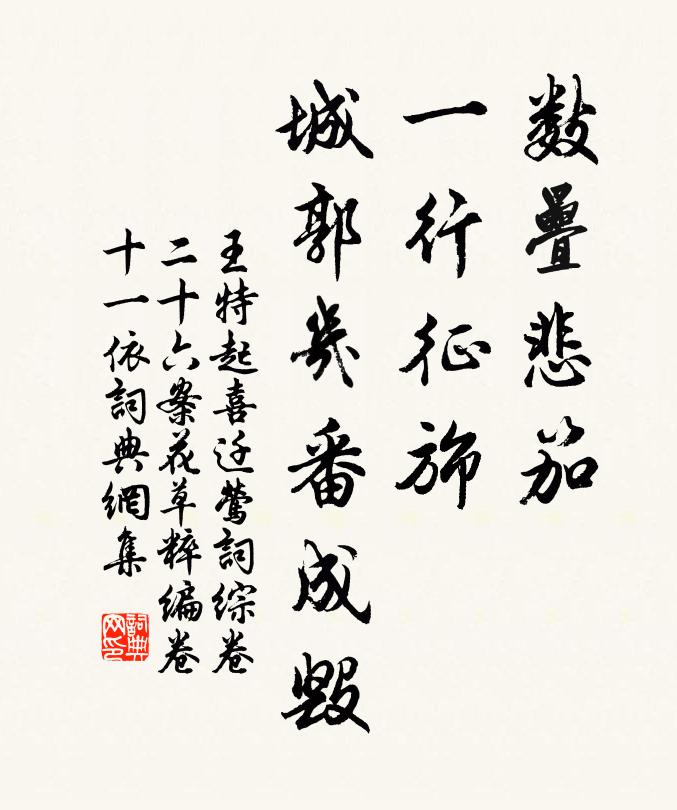 数疊悲笳
一行征旆
城郭幾番成毀
王特起喜迁鶯詞综卷
二十六案花草粹编卷
十一依詞典網集
詞典网印